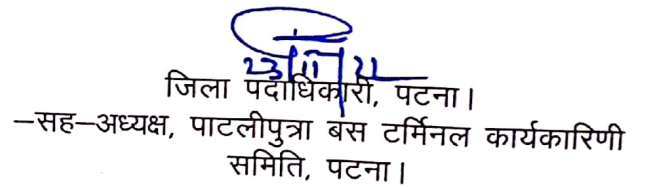 23/11/22
जिला पदाधिकारी, पटना।
–सह–अध्यक्ष, पाटलीपुत्रा बस टर्मिनल कार्यकारिणी
समिति, पटना।